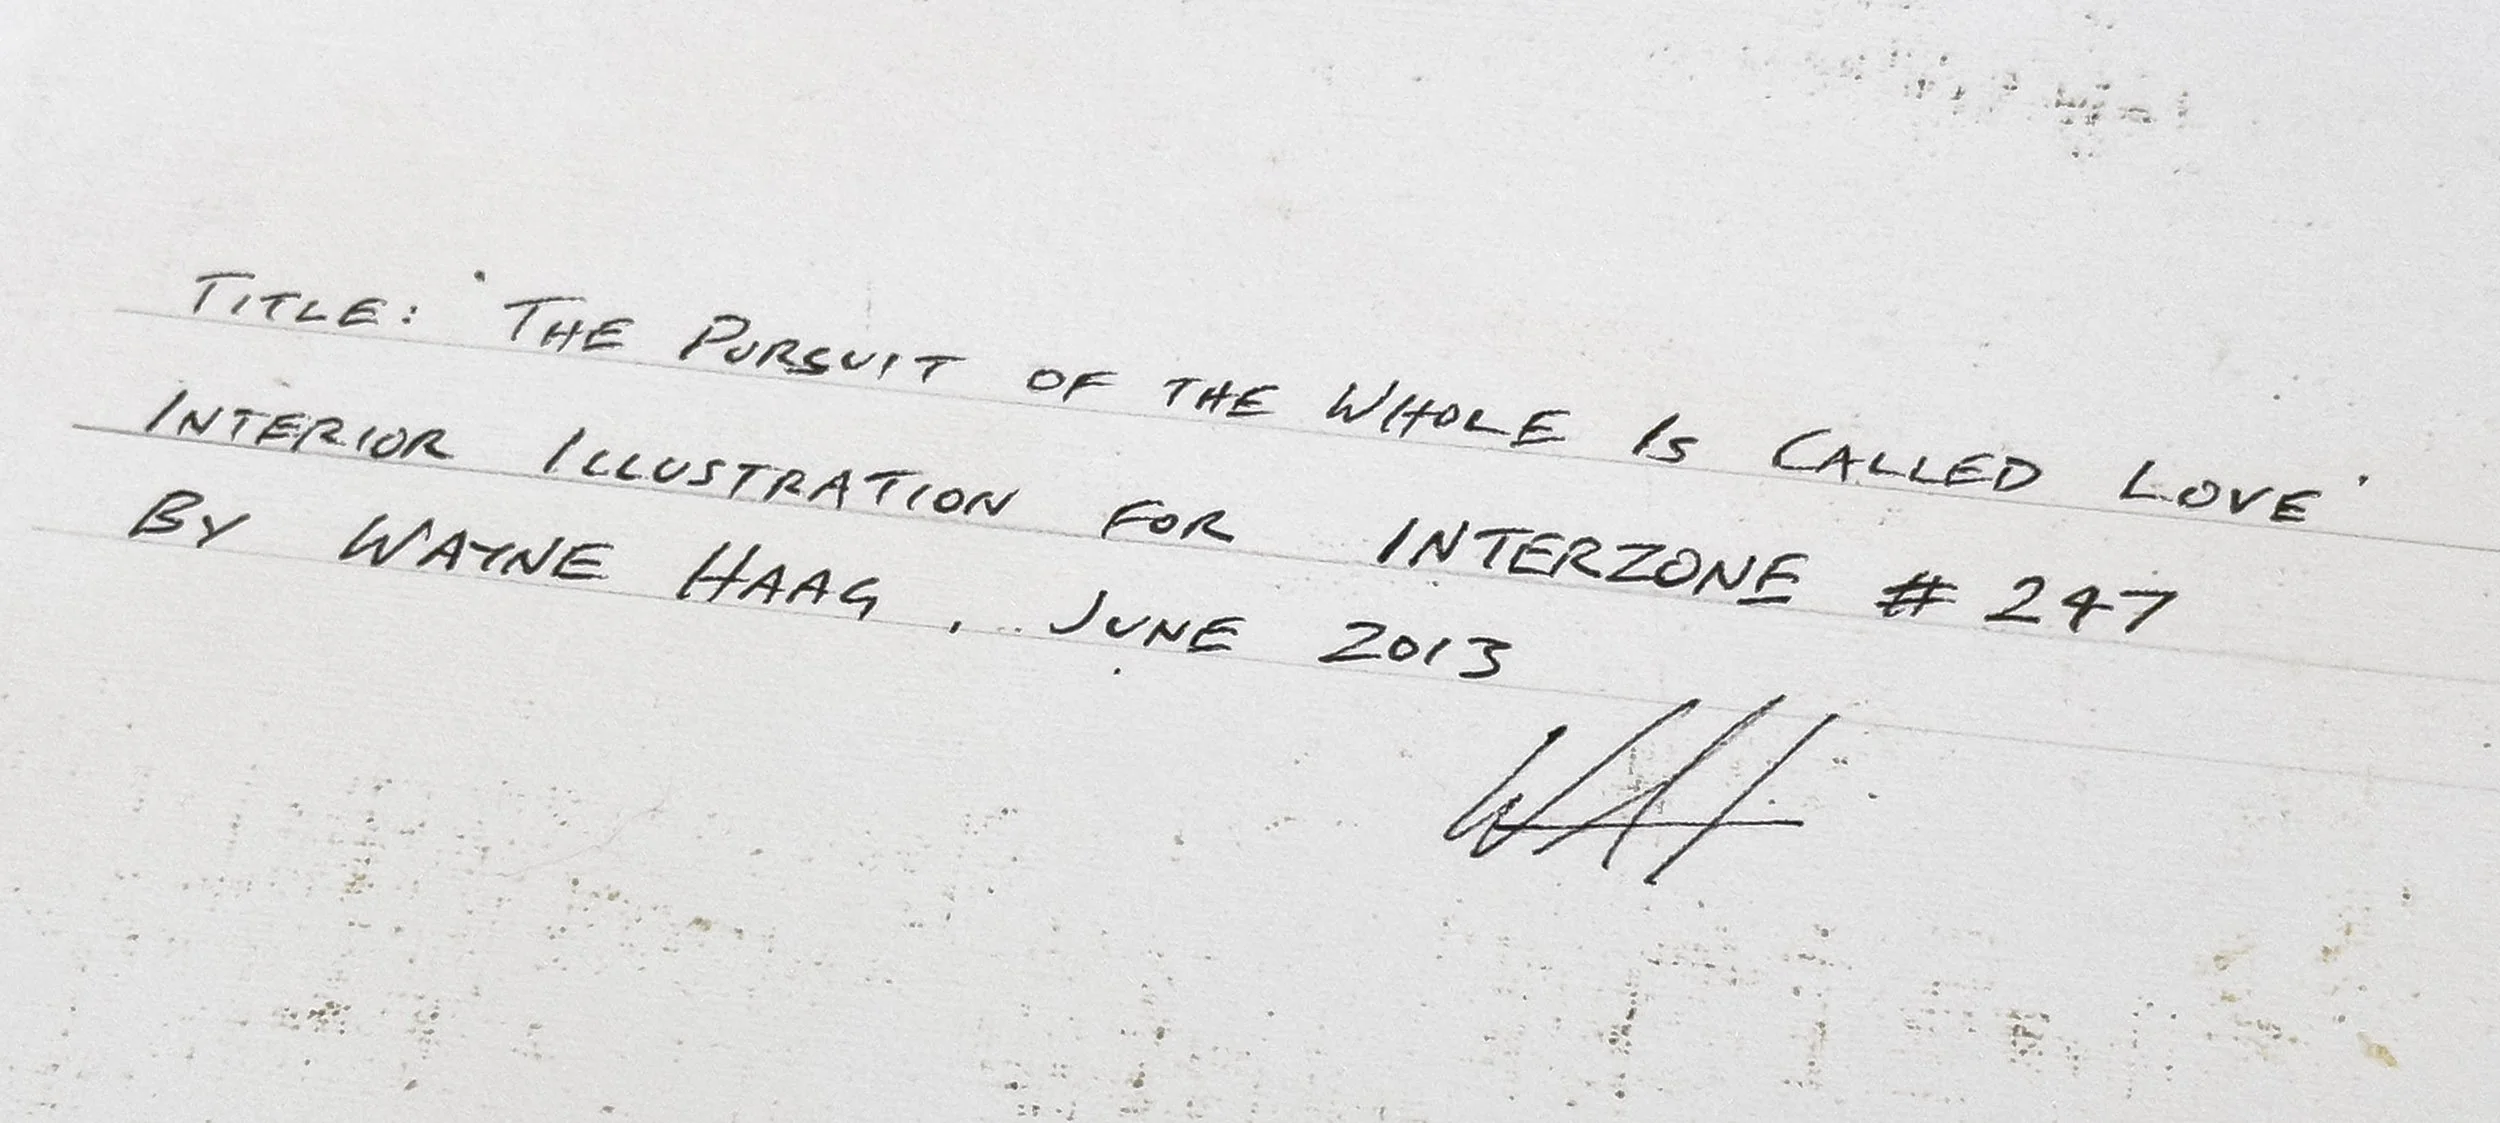 TITLE: 'THE PURSUIT OF THE WHOLE IS CALLED LOVE'
INTERIOR ILLUSTRATION FOR INTERZONE # 247
BY WAYNE HAAG, JUNE 2013